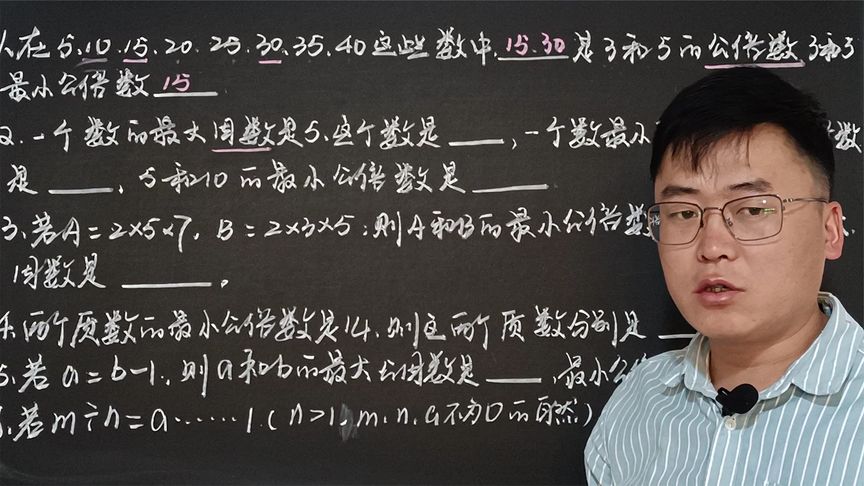 1.在5.10.15.20.25.30.35.40这些数中.15.30是3和5的公倍数3和5
最小公倍数15
2.一个数的最大因数是5.这个数是____,一个数最小 数
是____,5和10的最小公倍数是____
3.若A=2×5×7,B=2×3×5;则A和B的最小公倍数
因数是____。
4.两个质数的最小公倍数是14.则这两个质数分别是____
5.若a=b-1.则a和b的最大公因数是____,最小公倍
若m÷n=a……1.(n>1,m.n.a不为0的自然)